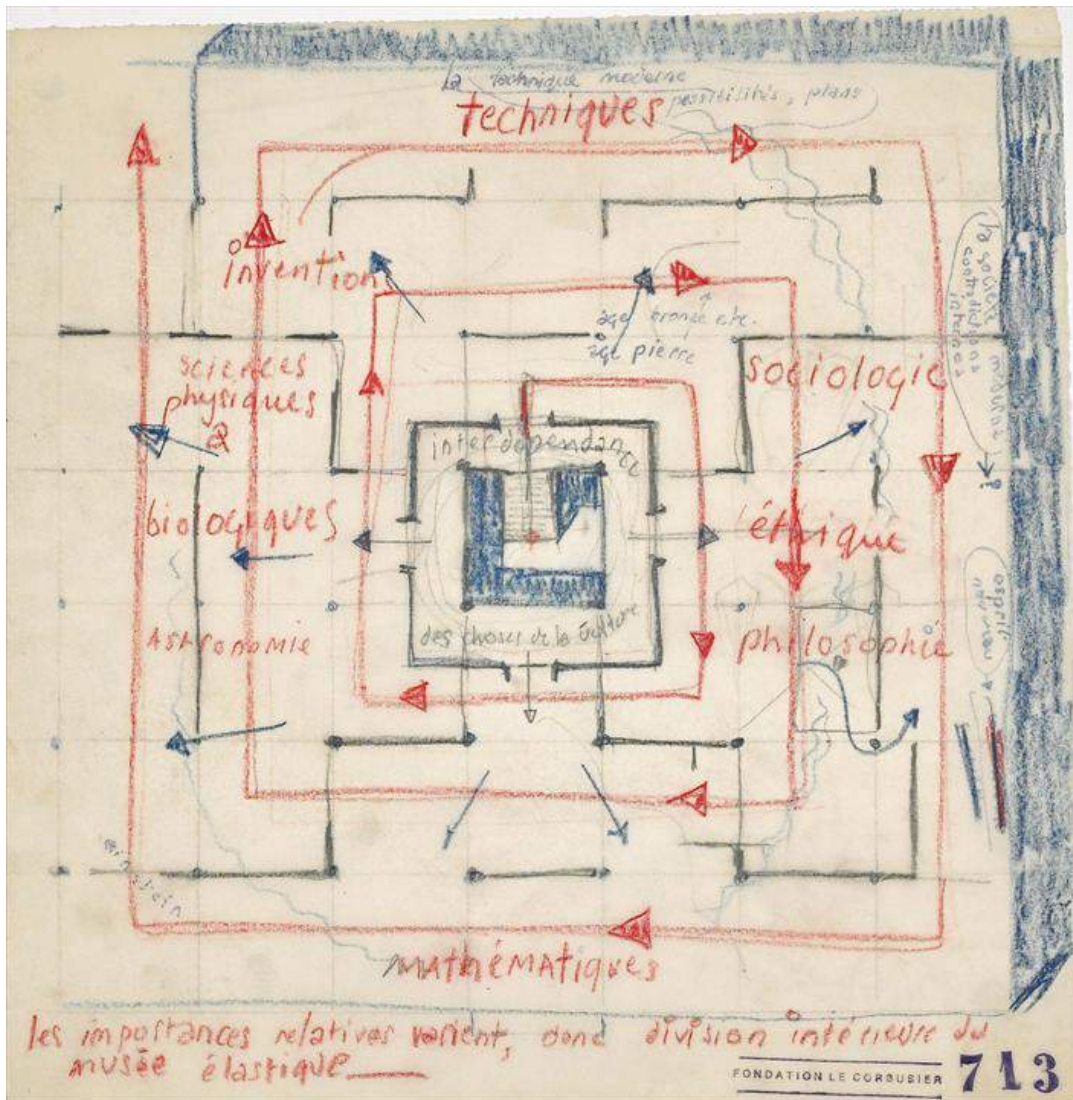 la technique moderne
possibilités, plans
techniques
invention
âge bronze etc.
âge pierre
sciences
physiques
&
sociologie
la société moderne
contradictions
internes
interdépendance
biologiques
éthique
des choses de la culture
Astronomie
philosophie
esprit
nouveau
einstein
mathématiques
les importances relatives varient, donc division intérieure du
musée élastique
FONDATION LE CORBUSIER 713